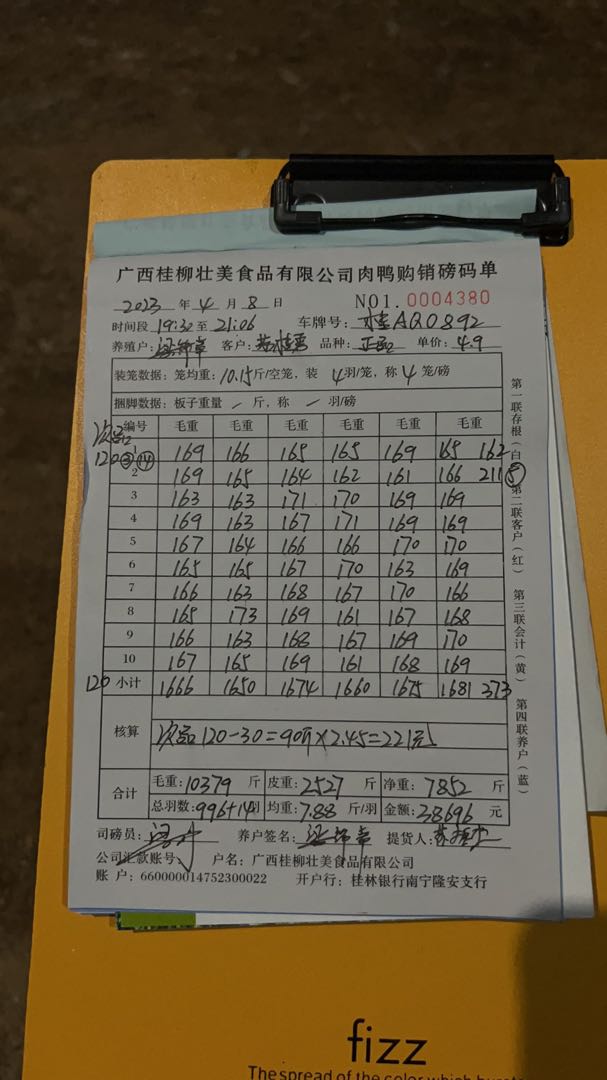 广西桂柳壮美食品有限公司肉鸭购销磅码单
2023 年 4 月 8 日 NO1. 0004380
时间段 19:30 至 21:06 车牌号: 桂AQ0892
养殖户: 客户: 品种: 单价: 4.9
装笼数据: 笼均重: 10.15 斤/空笼, 装 4 羽/笼, 称 4 笼/磅
捆脚数据: 板子重量 / 斤, 称 / 羽/磅
编号 毛重 毛重 毛重 毛重 毛重 毛重
次品 12
120 ③ ⑭
1 169 166 165 165 169 165 162
2 169 165 164 162 161 166 211 ⑤
3 163 163 171 170 169 169
4 169 163 167 171 169 169
5 167 164 166 166 170 170
6 165 165 167 170 163 169
7 166 163 168 167 170 166
8 165 173 169 161 167 168
9 166 163 168 167 169 170
10 167 165 169 161 168 169
120 小计 1666 1650 1674 1660 1675 1681 373
核算 次品120-30=90斤×2.45=221元
合计 毛重: 10379 斤 皮重: 2527 斤 净重: 7852 斤
总羽数: 996+14 羽 均重: 7.88 斤/羽 金额: 38696 元
司磅员: 养户签名: 提货人:
公司汇款账号 户名: 广西桂柳壮美食品有限公司
账 户: 660000014752300022 开户行: 桂林银行南宁隆安支行
第一联存根(白) 第二联客户(红) 第三联会计(黄) 第四联养户(蓝)
fizz
The spread of the color which